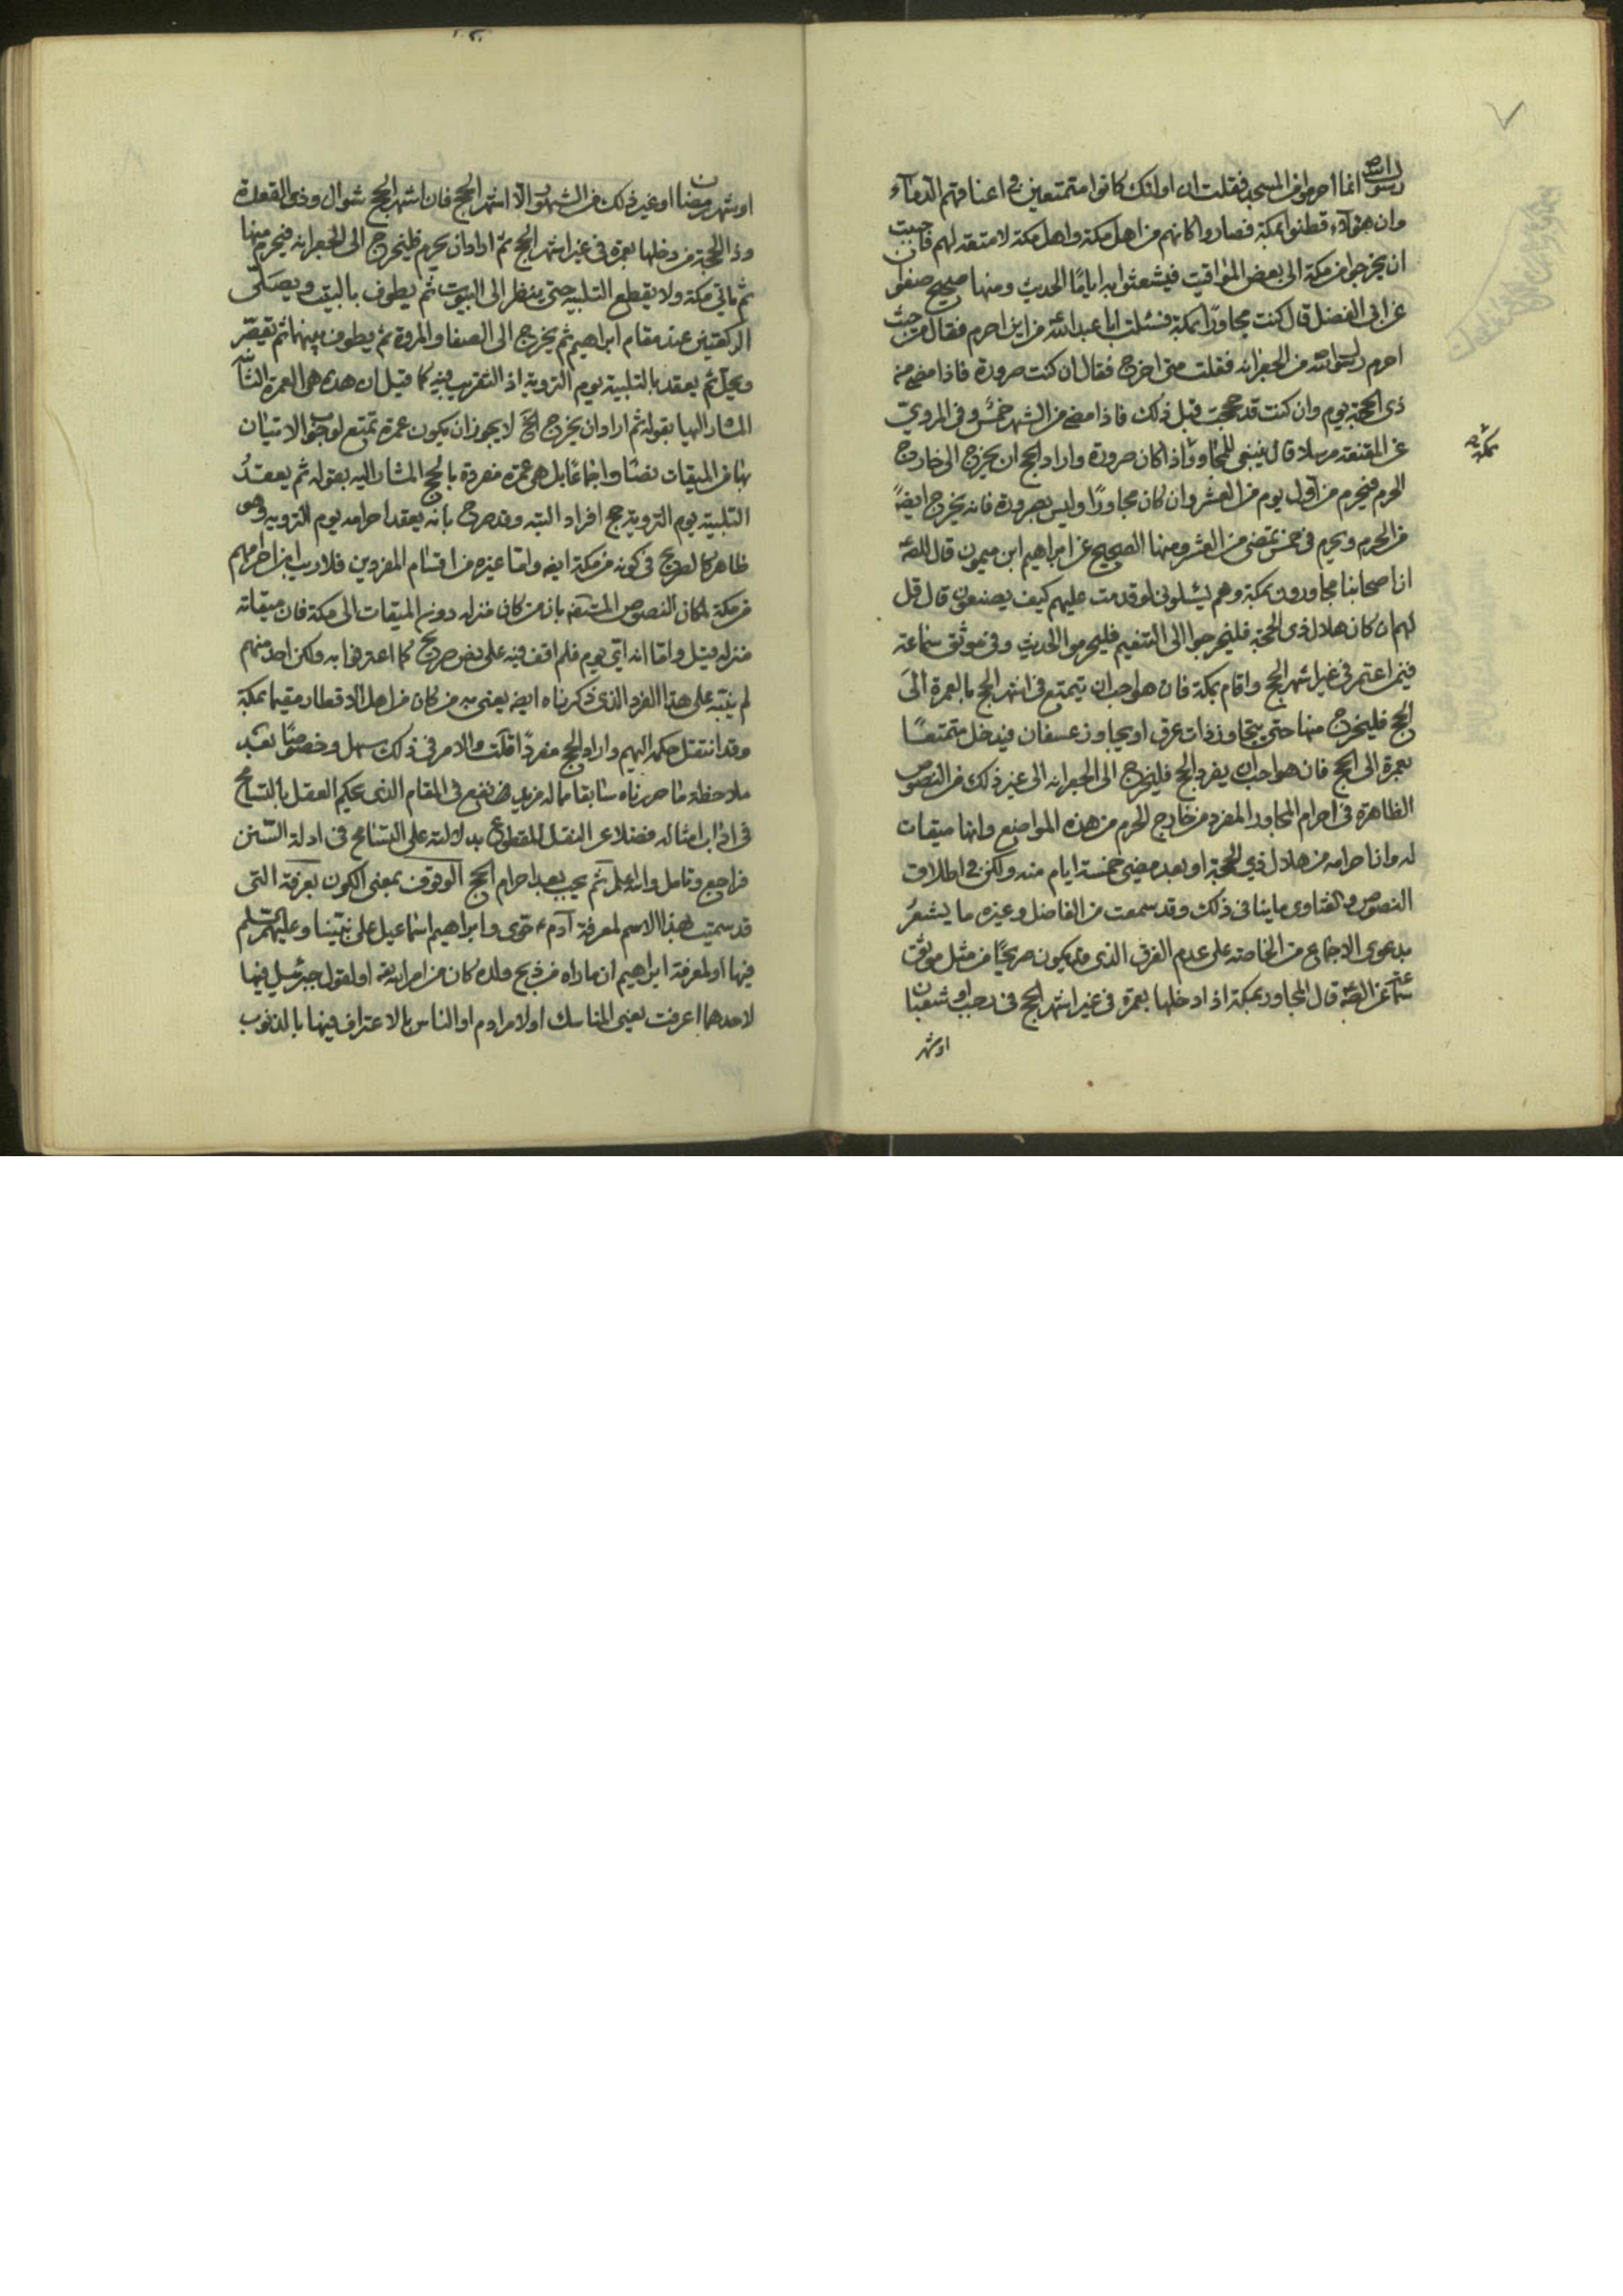 رسول الله انما احرموا من المسجد فقلت ان اولئك كانوا متمتعين في اعناقهم الدماء
وان هؤلاء قطنوا بمكة فصاروا كانهم من اهل مكة واهل مكة لا متعة لهم فاحببت
ان يخرجوا من مكة الى بعض المواقيت فيشعثوا به اياما الحديث ومنها صحيح صفوان
عن ابى الفضل قال كنت مجاورا بمكة فسئلت ابا عبد الله من اين احرم فقال من حيث
احرم رسول الله من الجعرانه فقلت متى اخرج فقال ان كنت صرورة فاذا مضى من
ذى الحجة يوم وان كنت قد حججت قبل ذلك فاذا مضى من الشهر خمس وفى المروي
عن المقنعة مرسلا قال ينبغى للمجاور اذا كان صرورة واراد الحج ان يخرج الى خارج
بمكة
الحرم فيحرم من اول يوم من العشر وان كان مجاورا وليس بصرورة فانه يخرج ايضا
من الحرم ويحرم في خمس تمضى من العشر ومنها الصحيح عن ابراهيم ابن ميمون قال
ان اصحابنا مجاورون بمكة وهم يسئلونى لو قدمت عليهم كيف يصنعون قال قل
لهم ان كان هلال ذى الحجة فليخرجوا الى التنعيم فليحرموا الحديث وفى موثق سماعة
فيمن اعتمر في غير اشهر الحج واقام بمكة فان هو احب ان يتمتع فى اشهر الحج بالعمرة الى
الحج فليخرج منها حتى يتجاوز ذات عرق او يجاوز عسفان فيدخل متمتعا
بعمرة الى الحج فان هو احب ان يفرد الحج فليخرج الى الجعرانه الى غير ذلك من النصوص
الظاهرة فى احرام المجاور المفرد من خارج الحرم من هذه المواضع وانها ميقات
له وان احرامه من هلال ذي الحجة او بعد مضى خمسة ايام منه ولكن في اطلاق
النصوص والفتاوى ما ينافى ذلك وقد سمعت من الفاضل وغيره ما يشعر
بدعوى الاجماع من الخاصة على عدم الفرق الذى قد يكون صريحا من مثل موثق
سماعة عن قال المجاور بمكة اذا دخلها بعمرة فى غير اشهر الحج فى رجب او شعبان
او شهر
او شهر رمضان او غير ذلك من الشهور الا اشهر الحج فان اشهر الحج شوال وذى القعدة
وذا الحجة من دخلها بعمرة فى غير اشهر الحج ثم اراد ان يحرم فليخرج الى الجعرانه فيحرم منها
ثم ياتى مكة ولا يقطع التلبية حتى ينظر الى البيوت ثم يطوف بالبيت ويصلى
الركعتين عند مقام ابراهيم ثم يخرج الى الصفا والمروة ثم يطوف بينهما ثم يقصر
ويحل ثم يعقد بالتلبية يوم التروية اذ التقريب فيه كما قيل ان هذه هى العمرة
المشار اليها بقوله ثم اراد ان يخرج لا يجوز ان يكون عمرة تمتع لوجوب الاتيان
بها من الميقات نصا واجماعا بل هى عمرة مفردة بالحج المشار اليه بقوله ثم يعقد
التلبية يوم التروية حج افراد البته وقد صرح بانه يعقد احرامه يوم التروية وهو
ظاهر كالصريح فى كونه من مكة ايضا واما غيره من اقسام المفردين فلا ريب احرامهم
من مكة لمكان النصوص بان من كان منزله دون الميقات الى مكة فان ميقاته
منزله قيل واما انه اي يوم فلم اقف فيه على نص صريح كما اعترفوا به ولكن احد منهم
لم ينبه على هذا الفرد الذى ذكرناه ايضا يعنى به من كان من اهل الاقطار مقيما بمكة
وقد انتقل حكمه اليهم واراد الحج مفردا قلت والامر فى ذلك سهل وخصوصا بعد
ملاحظة ما حررناه سابقا مما له مزيد نفع فى المقام الذى يحكم العقل بالتسامح
فى اداب امثاله فضلا عن النقل المقطوع بدلالته على التسامح فى ادلة السنن
فراجع وتامل والله اعلم ثم يجب بعد احرام الحج الوقوف بمعنى الكون بعرفة التى
قد سميت بهذا الاسم لمعرفة آدم حوى وابراهيم اسماعيل على نبينا وعليهم
فيها او لمعرفة ابراهيم ان ما راه من ذبح ولده كان من امر الله او لقول جبرئيل فيها
لاحدهما اعرفت يعنى المناسك او لامر ادم او الناس بالاعتراف فيها بالذنوب